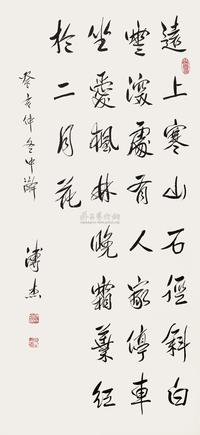 遠上寒山石徑斜白
雲深處有人家停車
坐愛楓林晚霜葉紅
於二月花
癸亥仲冬中澣
溥杰